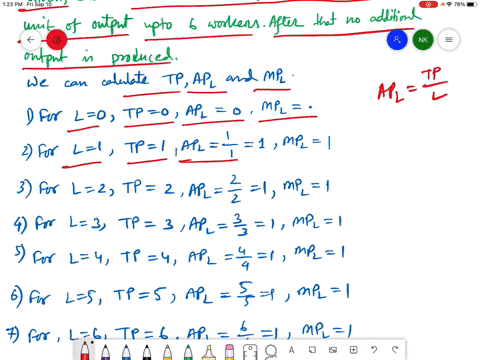 1:23 PM Fri Sep 10
78%
unit of output upto 6 workers. After that no additional
NK
output is produced.
We can calculate TP, APL and MPL.
APL = TP/L
1) For L=0, TP=0, APL = 0. MPL = .
2) For L=1, TP=1, APL = 1/1 = 1, MPL = 1
3) For L=2, TP= 2, APL = 2/2 = 1, MPL = 1
4) For L=3, TP = 3, APL = 3/3 = 1, MPL = 1
5) For L=4, TP=4, APL = 4/4 = 1, MPL = 1
6) For L=5, TP=5, APL = 5/5 = 1, MPL = 1
7) For, L=6, TP=6. APL = 6/6 = 1, MPL = 1